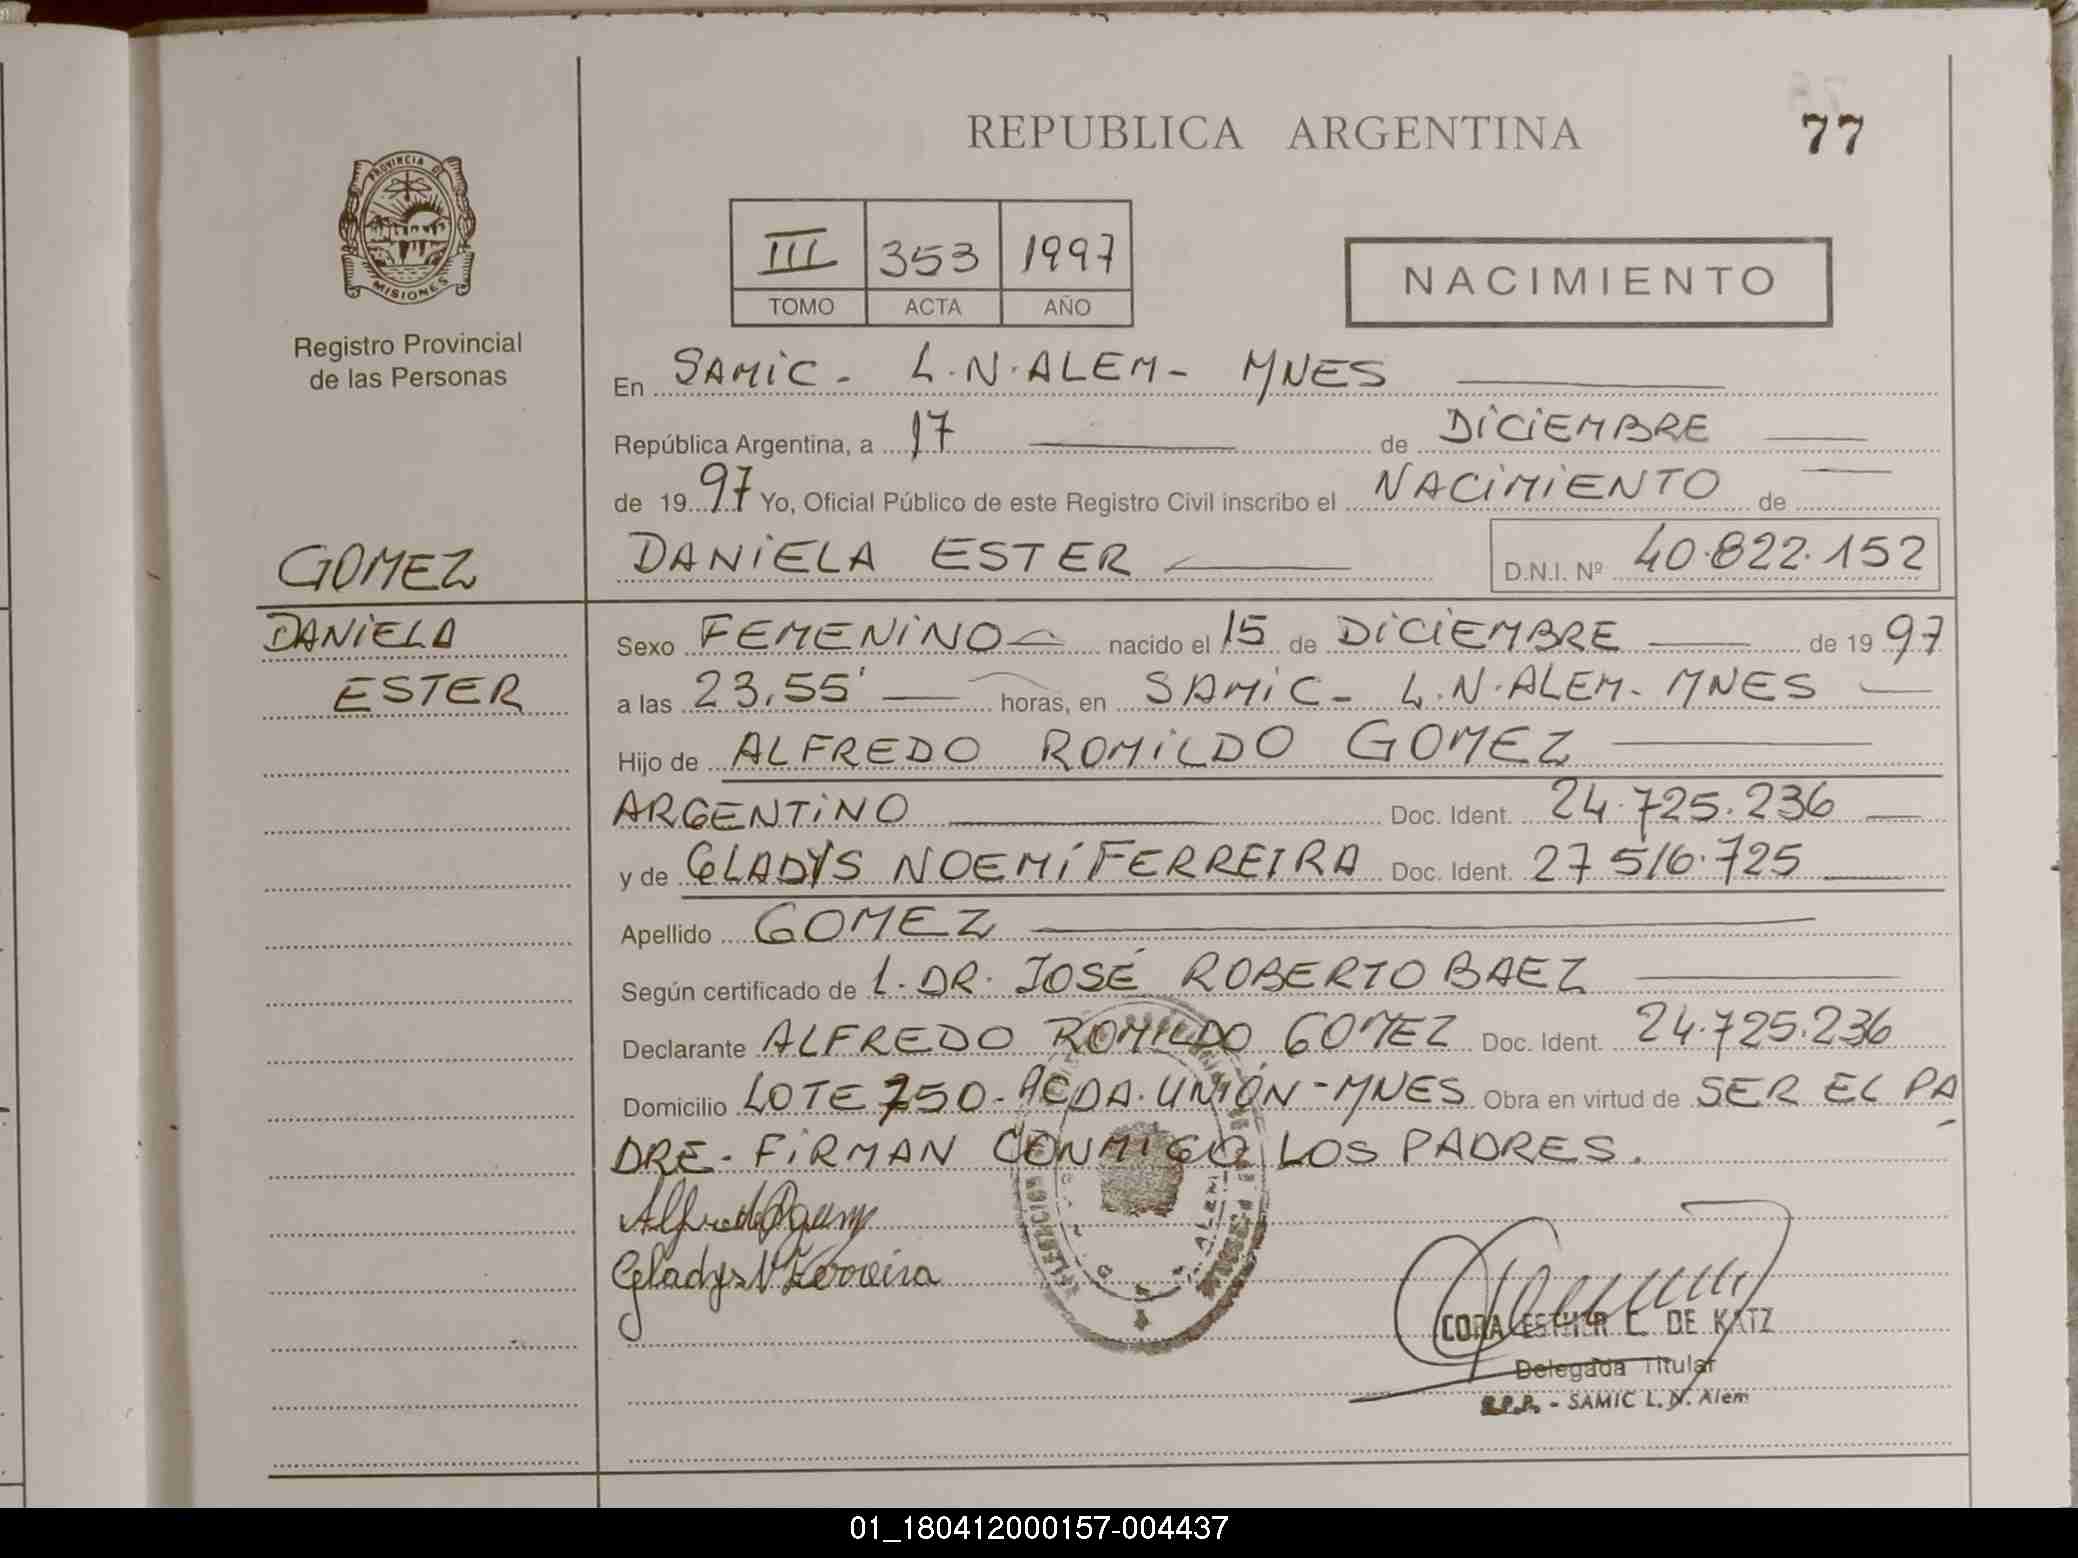 77
REPUBLICA ARGENTINA
PROVINCIA DE
MISIONES
Registro Provincial
de las Personas
III 353 1997
TOMO ACTA AÑO
NACIMIENTO
En SAMIC - L.N. ALEM - MNES
República Argentina, a 17 de DICIEMBRE
de 1997 Yo, Oficial Público de este Registro Civil inscribo el NACIMIENTO de
DANIELA ESTER D.N.I. Nº 40.822.152
GOMEZ
DANIELA
ESTER
Sexo FEMENINO nacido el 15 de DICIEMBRE de 1997
a las 23,55' horas, en SAMIC - L.N. ALEM - MNES
Hijo de ALFREDO ROMILDO GOMEZ
ARGENTINO Doc. Ident. 24.725.236
y de GLADYS NOEMÍ FERREIRA Doc. Ident. 27 516.725
Apellido GOMEZ
Según certificado de L. DR. JOSÉ ROBERTO BAEZ
Declarante ALFREDO ROMILDO GOMEZ Doc. Ident. 24.725.236
Domicilio LOTE 250 - ACDA. UNIÓN - MNES Obra en virtud de SER EL PA
DRE - FIRMAN CONMIGO LOS PADRES.
Gladys N Ferreira
CORA ESTHER C. DE KATZ
Delegada Titular
R.P.P. - SAMIC L. N. Alem
01_180412000157-004437